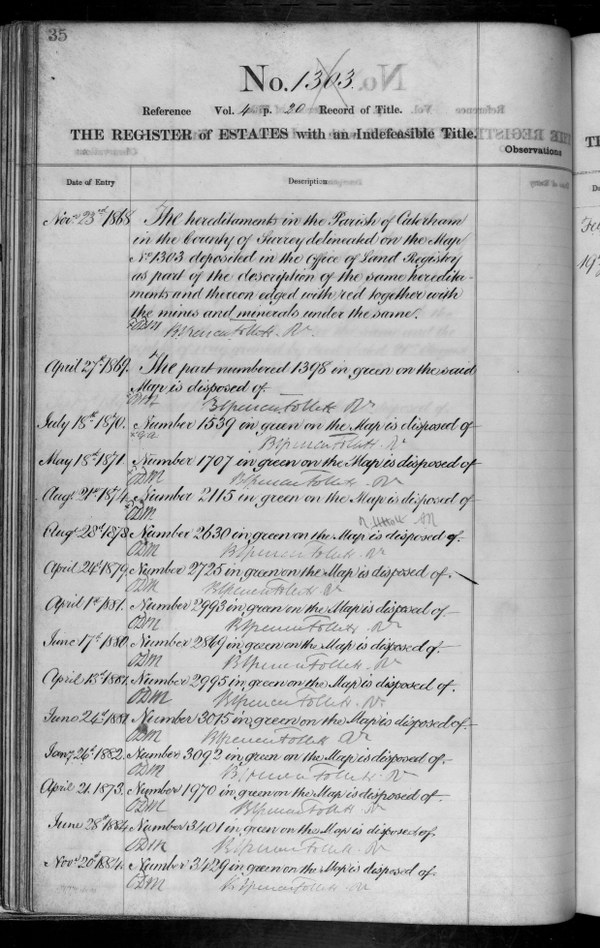 35
No. 1303.
Reference Vol. 4 p. 20 Record of Title.
THE REGISTER of ESTATES with an Indefeasible Title.
Observations
Date of Entry Description
Nov. 23rd 1868 The hereditaments in the Parish of Caterham
in the County of Surrey delineated on the Map
No 1303 deposited in the Office of Land Registry
as part of the description of the same heredita-
ments and thereon edged with red together with
the mines and minerals under the same.
BSpencer Follett Rr.
April 27th 1869. The part numbered 1398 in green on the said
Map is disposed of
BSpencer Follett Rr
July 18th 1870. Number 1539 in green on the Map is disposed of
BSpencer Follett Rr
May 18th 1871. Number 1707 in green on the Map is disposed of
ODM BSpencer Follett Rr
Augt 21st 1874. Number 2115 in green on the Map is disposed of
ODM
Augt 28th 1878. Number 2630 in green on the Map is disposed of.
ODM BSpencer Follett Rr
April 24th 1879. Number 2725 in green on the Map is disposed of.
ODM BSpencer Follett Rr
April 1st 1881. Number 2993 in green on the Map is disposed of.
ODM BSpencer Follett Rr
June 17th 1880. Number 2869 in green on the Map is disposed of.
ODM BSpencer Follett Rr
April 13th 1881. Number 2995 in green on the Map is disposed of.
ODM BSpencer Follett Rr
June 24th 1881. Number 3015 in green on the Map is disposed of.
ODM BSpencer Follett Rr
Jany 26th 1882. Number 3092 in green on the Map is disposed of.
ODM BSpencer Follett Rr
April 21. 1873. Number 1970 in green on the Map is disposed of.
ODM BSpencer Follett Rr
June 28th 1884. Number 3401 in green on the Map is disposed of.
ODM BSpencer Follett Rr
Nov. 20th 1884. Number 3429 in green on the Map is disposed of.
ODM BSpencer Follett Rr